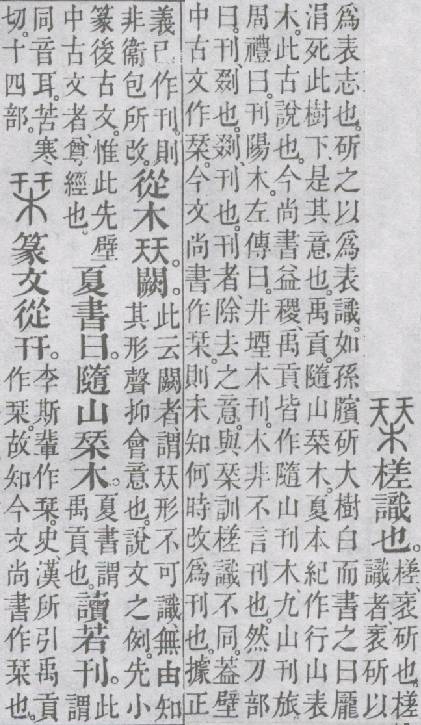 槎識也。槎、衺斫也。槎
識者、衺斫以
爲表志也。斫之以爲表識。如孫臏斫大樹白而書之曰龐
涓死此樹下。是其意也。禹貢。隨山栞木。夏本紀作行山表
木。此古說也。今尚書益稷、禹貢皆作隨山刊木、九山刊旅。
周禮曰。刊陽木。左傳曰。井堙木刊。木非不言刊也。然刀部
曰。刊、剟也。剟、刊也。刊者、除去之意。與栞訓槎識不同。葢壁
中古文作栞。今文尚書作栞。則未知何時改爲刊也。據正
義已作刊。則
非衞包所改。
從木㚘。闕。
此云闕者、謂㚘形不可識。無由知
其形聲抑會意也。說文之例。先小
篆後古文。惟此先壁
中古文者、尊經也。
夏書曰。隨山栞木。
夏書謂
禹貢也。
讀若刊。
此
謂
同音耳。苦寒
切。十四部。
篆文從幵。
李斯輩作栞。史、漢所引禹貢
作栞。故知今文尚書作栞也。